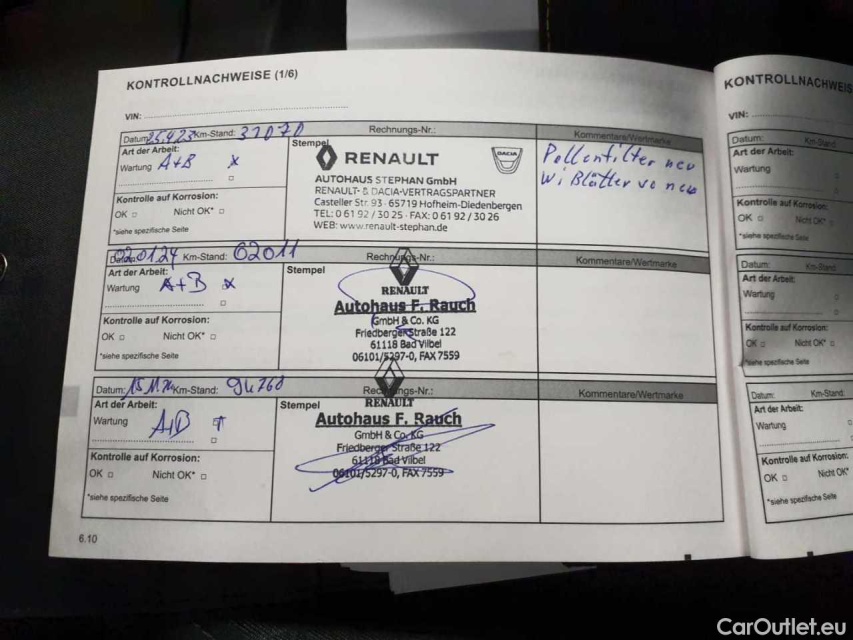 KONTROLLNACHWEISE (1/6)
VIN:
Datum: 25.4.23 Km-Stand: 31070 Rechnungs-Nr.: Kommentare/Wertmarke
Art der Arbeit:
Wartung A+B x
Stempel
RENAULT
DACIA
AUTOHAUS STEPHAN GmbH
RENAULT- & DACIA-VERTRAGSPARTNER
Casteller Str. 93 · 65719 Hofheim-Diedenbergen
TEL: 0 61 92 / 30 25 · FAX: 0 61 92 / 30 26
WEB: www.renault-stephan.de
Pollenfilter neu
Wi Blätter vo neu
Kontrolle auf Korrosion:
OK Nicht OK*
*siehe spezifische Seite
Km-Stand: 62011 Rechnungs-Nr.: Kommentare/Wertmarke
Art der Arbeit:
Wartung A+B x
Stempel
RENAULT
Autohaus F. Rauch
GmbH & Co. KG
Friedberger Straße 122
61118 Bad Vilbel
06101/5297-0, FAX 7559
Kontrolle auf Korrosion:
OK Nicht OK*
*siehe spezifische Seite
Datum: Km-Stand: 94768 Rechnungs-Nr.: Kommentare/Wertmarke
Art der Arbeit:
Wartung A+B
Stempel
RENAULT
Autohaus F. Rauch
GmbH & Co. KG
Friedberger Straße 122
61118 Bad Vilbel
06101/5297-0, FAX 7559
Kontrolle auf Korrosion:
OK Nicht OK*
*siehe spezifische Seite
6.10
KONTROLLNACHWEIS
VIN:
Datum: Km-Stand:
Art der Arbeit:
Wartung
Kontrolle auf Korrosion:
OK Nicht OK*
*siehe spezifische Seite
Datum: Km-Stand:
Art der Arbeit:
Wartung
Kontrolle auf Korrosion:
OK Nicht OK*
*siehe spezifische Seite
Datum: Km-Stand:
Art der Arbeit:
Wartung
Kontrolle auf Korrosion:
OK Nicht OK*
*siehe spezifische Seite
CarOutlet.eu